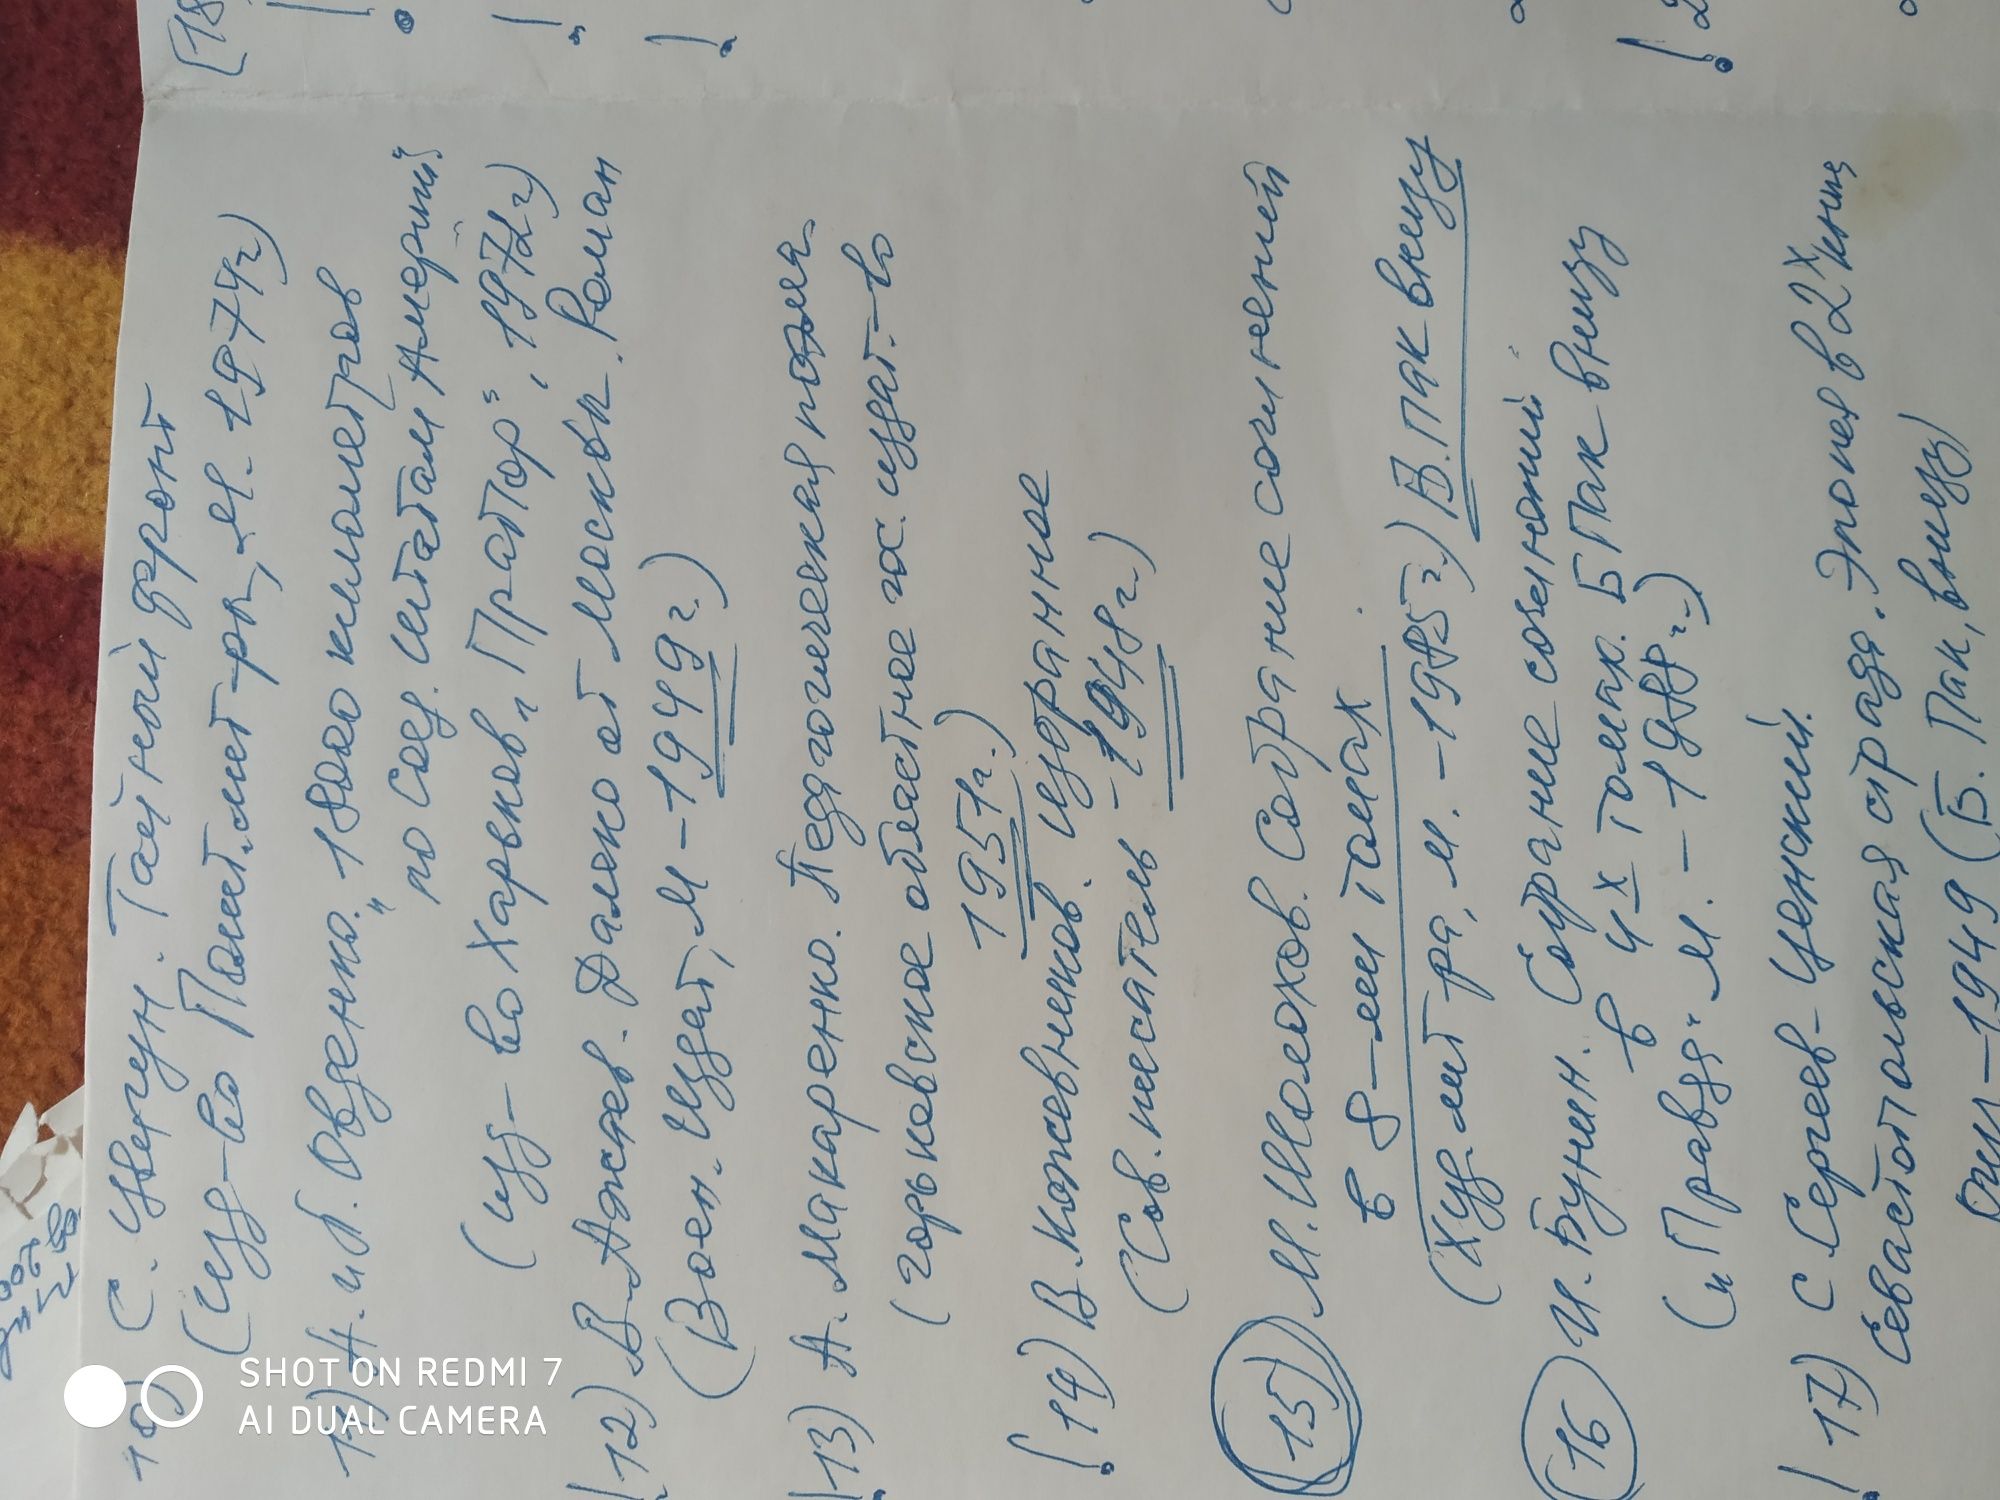 10) С. Цвигун. Тайный фронт
(Изд-во Полит. лит-ры, М. 1974г)
11) Н. и Л. Овденко. "18000 километров
по Соед. штатам Америки"
(изд-во Харьков "Прапор", 1972г)
! 12) В. Ажаев. Далеко от Москвы. Роман
(Воен. Издат, М-1949г.)
! 13) А. Макаренко. Педагогическая поэма.
(горьковское областное гос. издат.-во
1951г.)
! 14) В. Кожевников. Избранное
(Сов. писатель - 1948г.)
15) М. Шолохов. Собрание сочинений
в 8-ми томах
(Худ. лит ра, М. -1985г.) В. пак внизу
16) И. Бунин. Собрание сочинений
в 4х томах. Б Пак внизу
("Правда" М. - 1988г.)
! 17) С. Сергеев-Ценский.
Севастопольская страда. Эпопея в 2х книг
-1949 (Б. Пак, внизу)
[18
!
!
!
! 2
SHOT ON REDMI 7
AI DUAL CAMERA